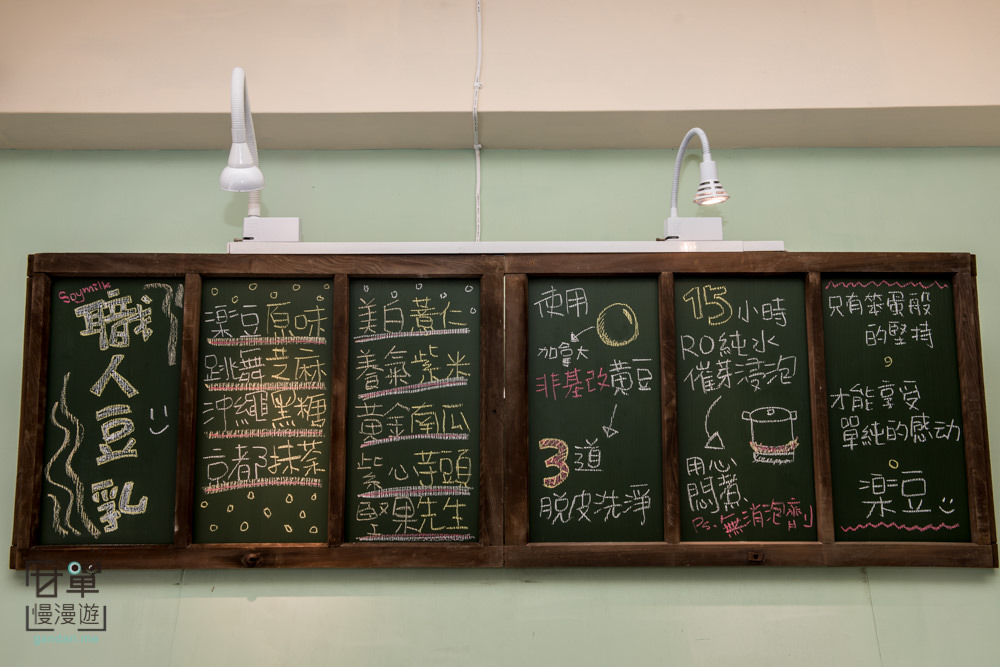 Soymilk
職人豆乳
楽豆原味
跳舞芝麻
沖繩黑糖
京都抹茶
美白薏仁
養氣紫米
黃金南瓜
紫心芋頭
堅果先生
使用
加拿大
非基改黃豆
3道
脫皮洗淨
15小時
RO純水
催芽浸泡
用心
悶煮
Ps.「無消泡劑」
只有笨蛋般
的堅持
,
才能享受
單純的感动
。
楽豆
甘單
慢漫遊